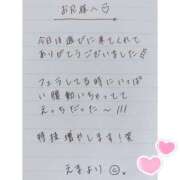 お兄様へ♡
今日は遊びに来てくれて
ありがとうございました!
フェラしてる時にいっぱい
腰動いちゃってて
えっちだった〜!!!
特技増やします!笑
えまより☺